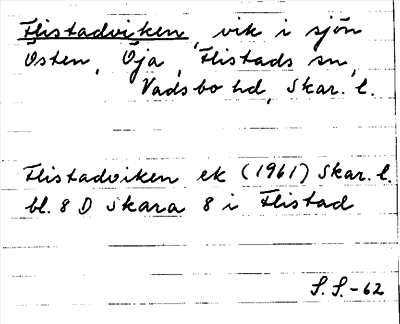 Flistadviken, vik i sjön
Östen, Öja, Flistads sn,
Vadsbo hd, Skar. l.
Flistadviken ek (1961) Skar. l.
bl. 8 D Skara 8 i Flistad
S. S. -62